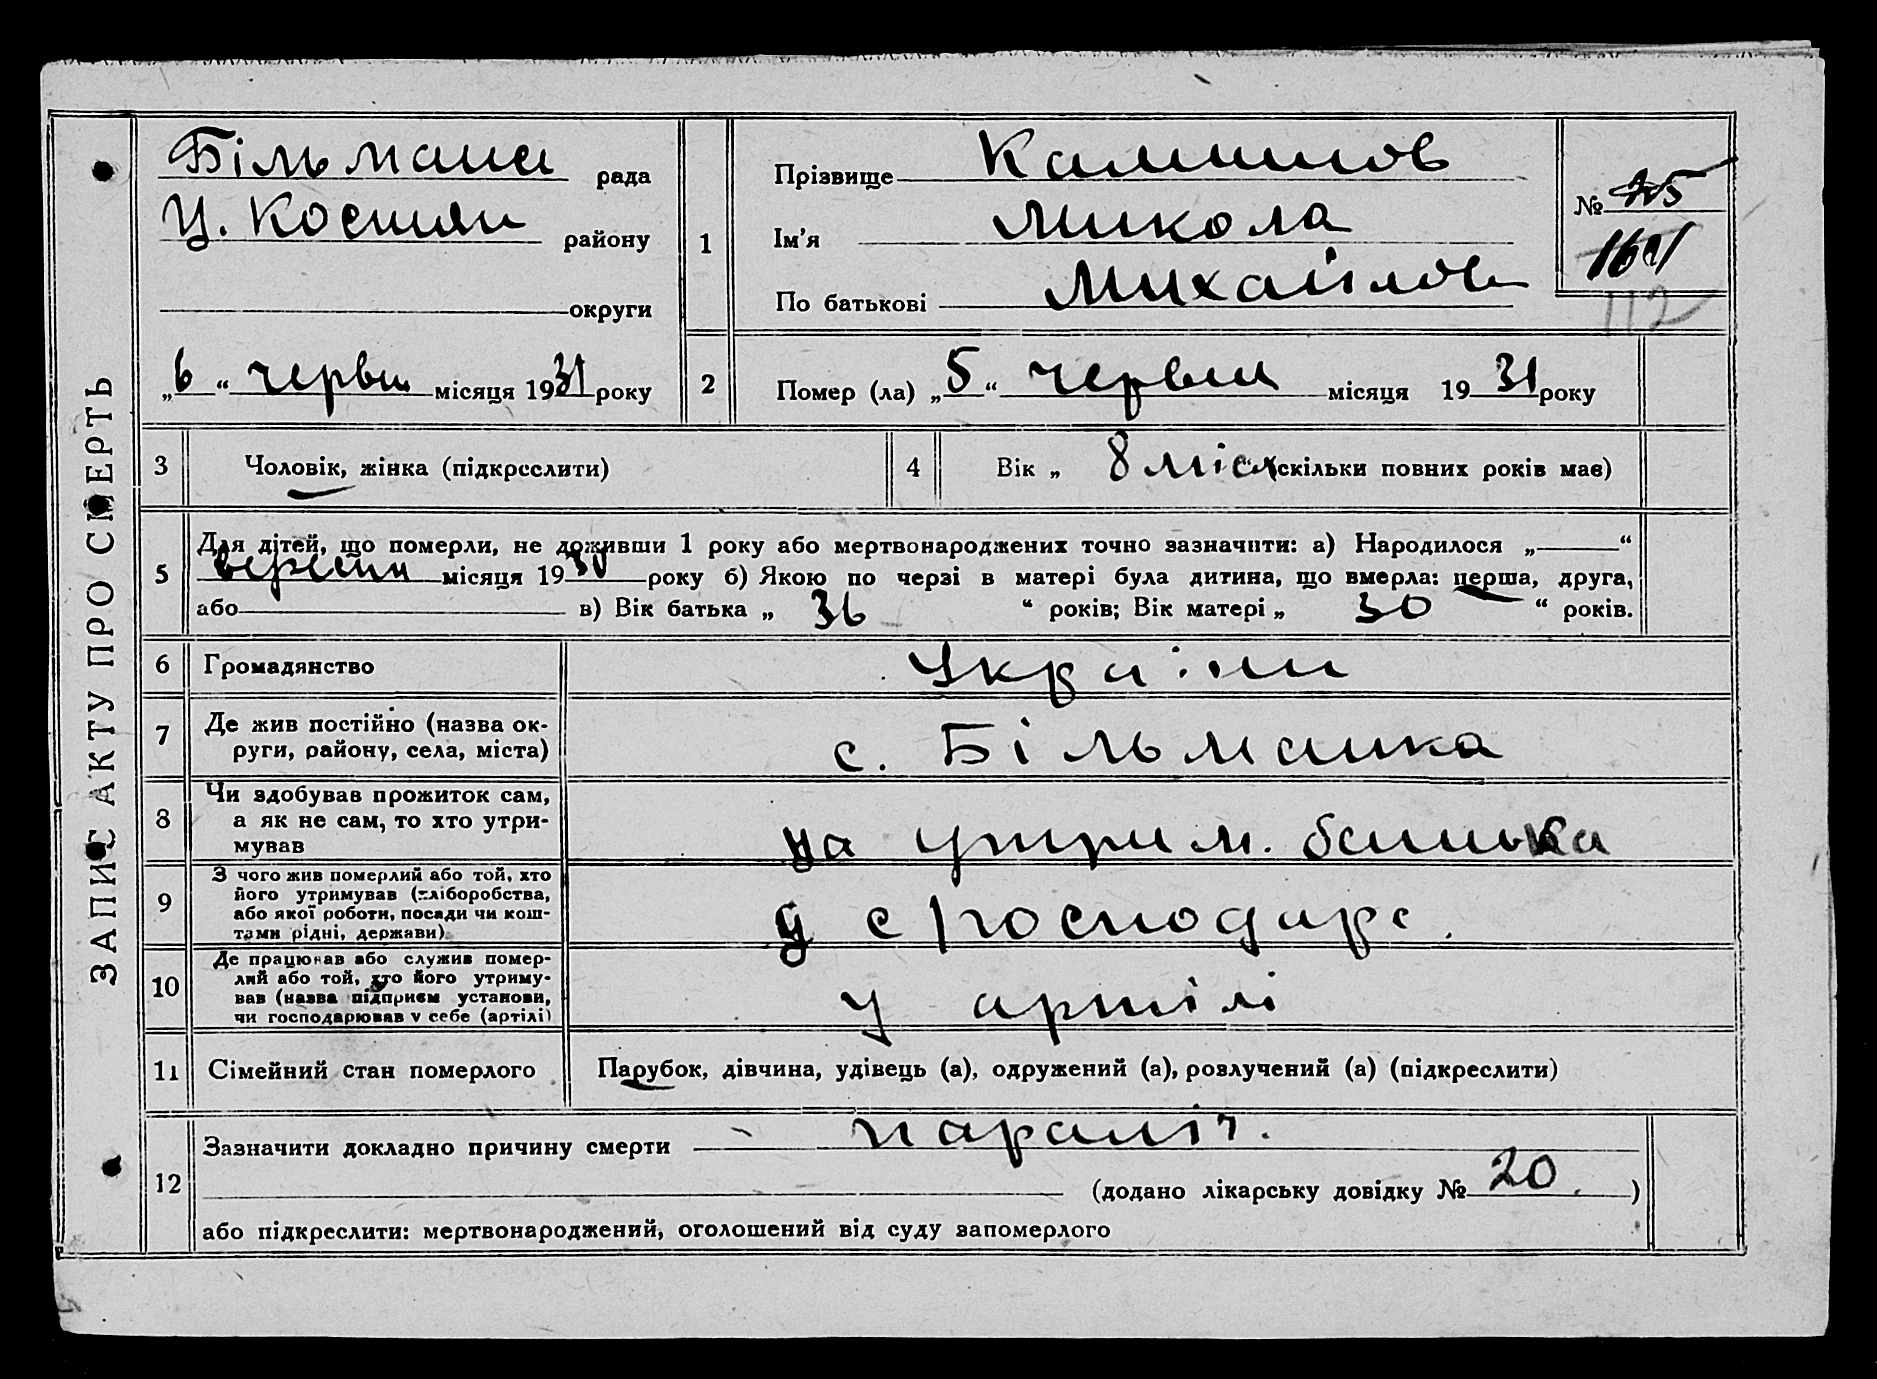 ЗАПИС АКТУ ПРО СМЕРТЬ
Більман рада
Ц. Костян району
округи
„6“ червн місяця 1931 року
1
Прізвище
Ім’я Микола
По батькові Михайлов
№
112
2 Помер (ла) „5“ червн місяця 1931 року
3 Чоловік, жінка (підкреслити)
4 Вік „8 міся“ (скільки повних років має)
5 Для дітей, що померли, не доживши 1 року або мертвонароджених точно зазначити: а) Народилося „ “
вересня місяця 1930 року б) Якою по черзі в матері була дитина, що вмерла: перша, друга,
або в) Вік батька „ 36 “ років; Вік матері „ 30 “ років.
6 Громадянство Україн
7 Де жив постійно (назва ок-
руги, району, села, міста) с. Більманка
8 Чи здобував прожиток сам,
а як не сам, то хто утри-
мував на утрим. батька
9 З чого жив померлий або той, хто
його утримував (хліборобства,
або якої роботи, посади чи кош-
тами рідні, держави) с/господарс.
10 Де працював або служив помер-
лий або той, хто його утриму-
вав (назва підприєм установи,
чи господарював у себе (артілі) у артілі
11 Сімейний стан померлого Парубок, дівчина, удівець (а), одружений (а), розлучений (а) (підкреслити)
12 Зазначити докладно причину смерти параліч.
(додано лікарську довідку № 20. )
або підкреслити: мертвонароджений, оголошений від суду запомерлого